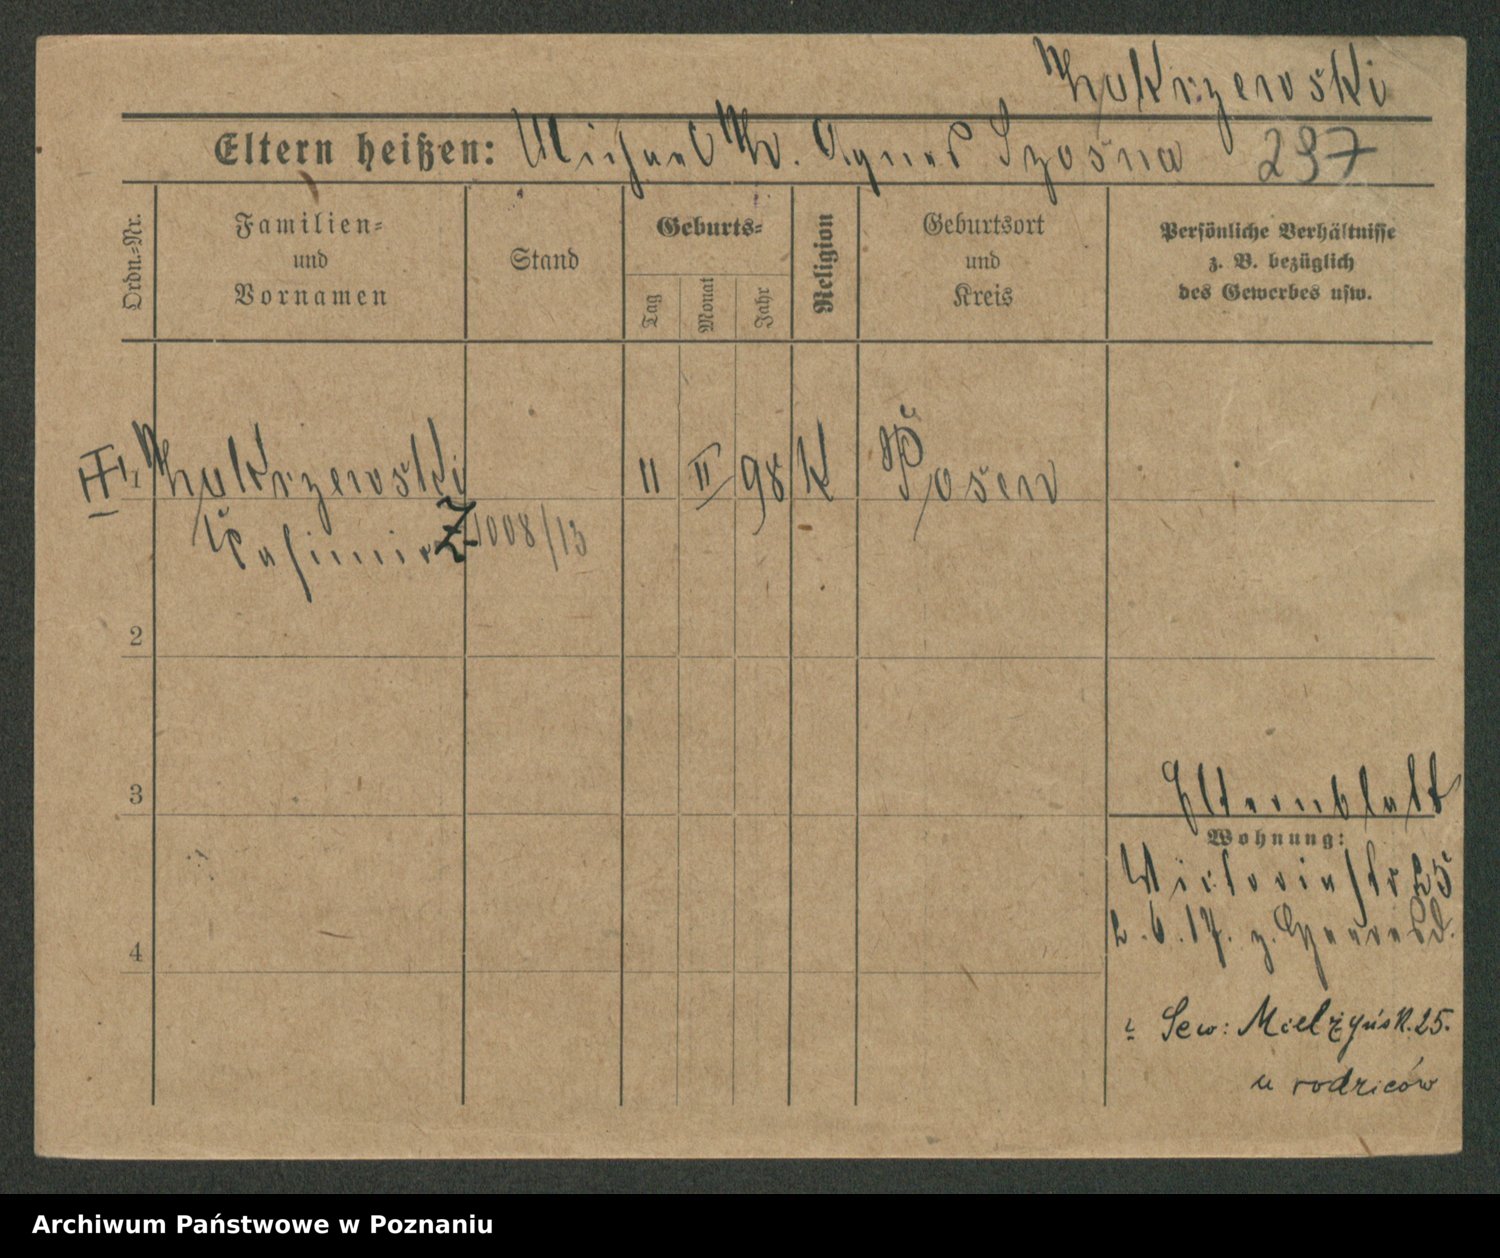 Mokrzewski
Eltern heißen: Michael M. Agnes Szosna 237
Ordn.-Nr.
Familien-
und
Vornamen
Stand
Geburts-
Tag
Monat
Jahr
Religion
Geburtsort
und
Kreis
Persönliche Verhältnisse
z. B. bezüglich
des Gewerbes usw.
1 Mokrzewski 11 II 98 K Posen
Casimir 1008/13
2
3
Elternblatt
Wohnung:
Victoriastr 25
4
2.6.17. z.
Sew: Mielżyńsk. 25.
u rodziców
Archiwum Państwowe w Poznaniu